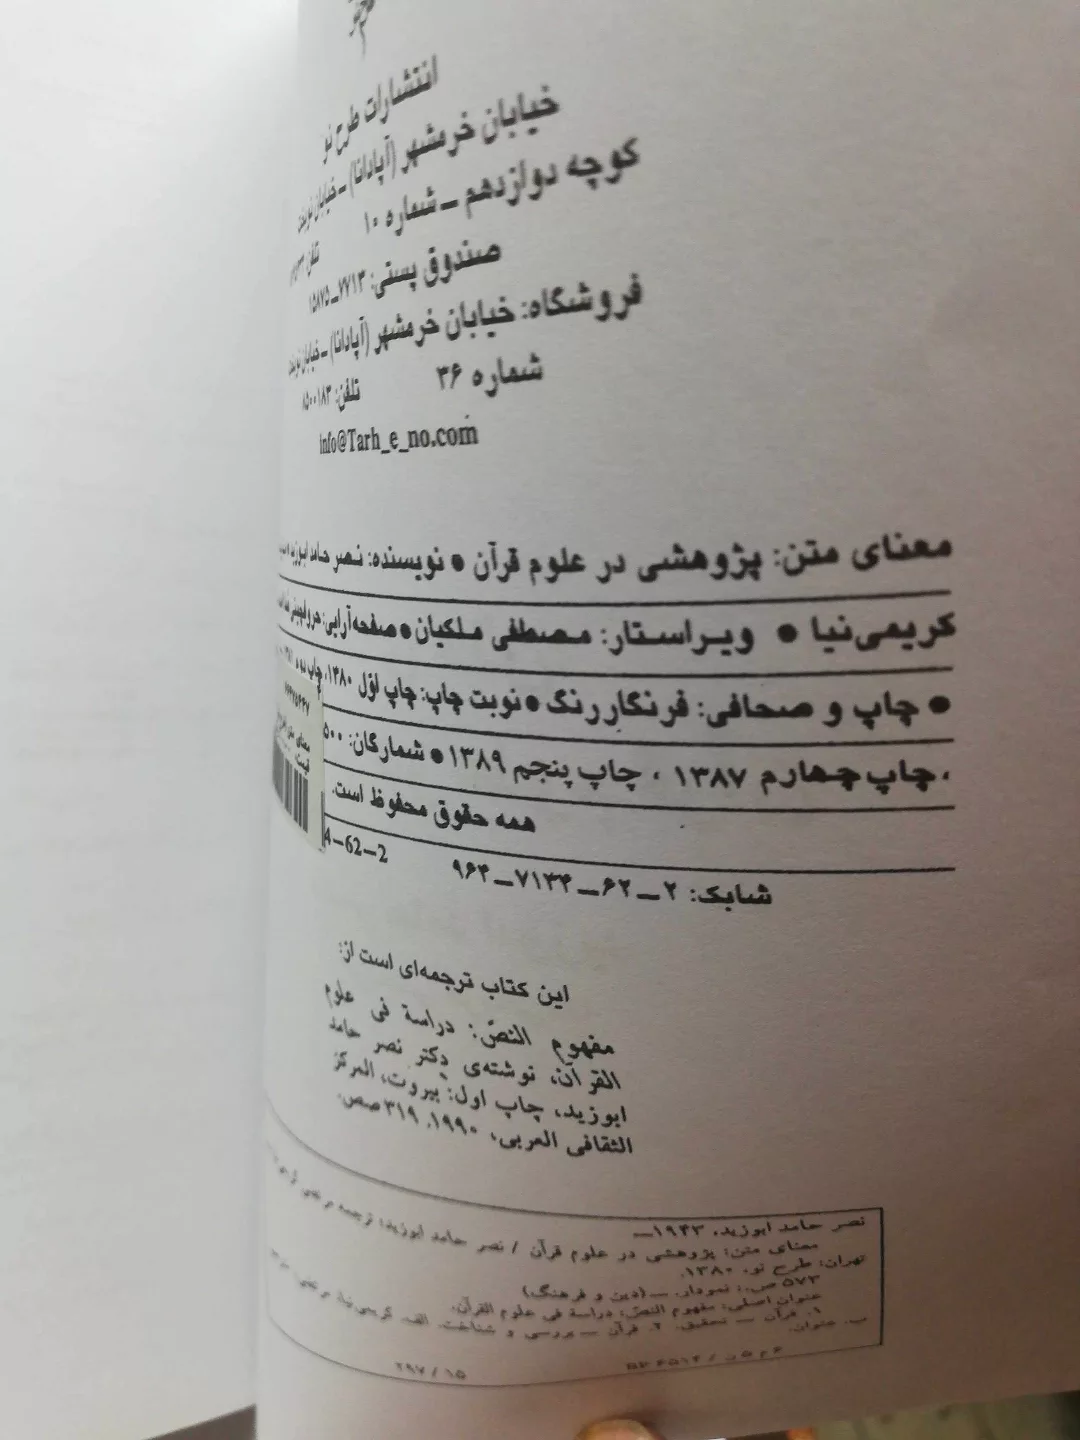 انتشارات طرح نو
خیابان خرمشهر (آپادانا) ـ خیابان نوبخت
کوچه دوازدهم ـ شماره ۱۰ تلفن:
صندوق پستی: ۷۷۱۳ـ۱۵۸۷۵
فروشگاه: خیابان خرمشهر (آپادانا) ـ خیابان نوبخت
شماره ۳۶ تلفن: ۸۵۰۰۱۸۳
info@Tarh_e_no.com
معنای متن: پژوهشی در علوم قرآن ● نویسنده: نصر حامد ابوزید
کریمی‌نیا ● ویراستار: مصطفی ملکیان ● صفحه‌آرایی: حروفچینی
● چاپ و صحافی: فرنگاررنگ ● نوبت چاپ: چاپ اوّل ۱۳۸۰، چاپ دوم
، چاپ چهارم ۱۳۸۷ ، چاپ پنجم ۱۳۸۹ ● شمارگان:
همه حقوق محفوظ است.
شابک: ۲ـ۶۲ـ۷۱۳۴ـ۹۶۴ 4-62-2
معنای متن
قیمت:
این کتاب ترجمه‌ای است از:
مفهوم النصّ: دراسة فی علوم
القرآن، نوشته‌ی دکتر نصر حامد
ابوزید، چاپ اول: بیروت، المرکز
الثقافی العربی، ۱۹۹۰. ۳۱۹ صص.
نصر حامد ابوزید، ۱۹۴۳ـ
معنای متن: پژوهشی در علوم قرآن / نصر حامد ابوزید؛ ترجمه مرتضی
تهران: طرح نو، ۱۳۸۰.
۵۷۳ ص.: نمودار. ـ (دین و فرهنگ)
عنوان اصلی: مفهوم النصّ: دراسة فی علوم القرآن.
۱. قرآن ـ تحقیق. ۲. قرآن ـ بررسی و شناخت. الف. کریمی‌نیا، مرتضی،
ب. عنوان.
۲۹۷ / ۱۵